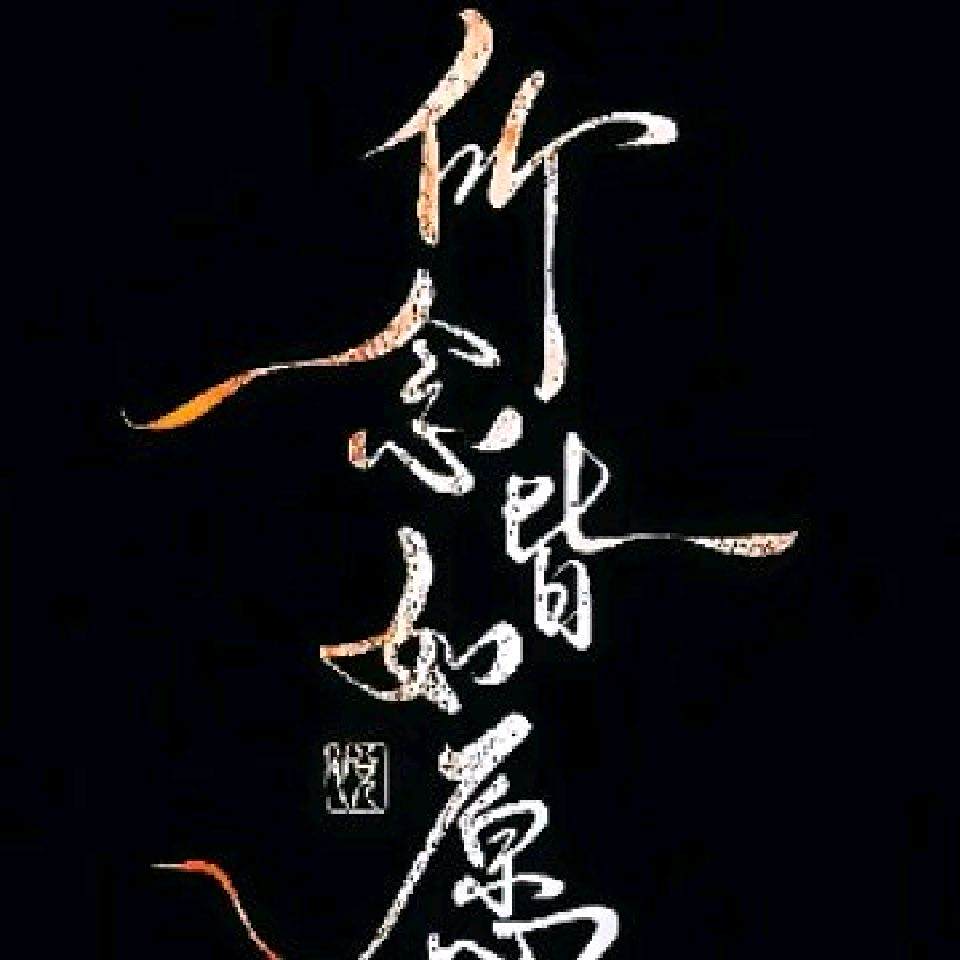 所念皆如愿